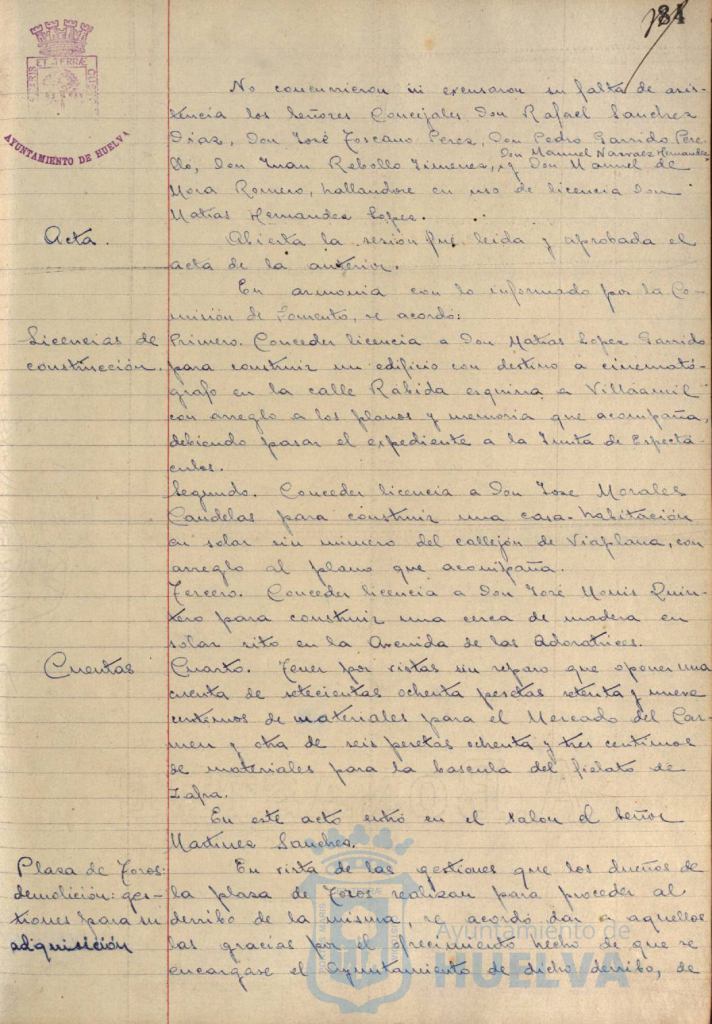 84
PORTUS MARIS ET TERRÆ CUSTODIA
AYUNTAMIENTO DE HUELVA
No concurrieron ni excusaron su falta de asis-
tencia los Señores Concejales Don Rafael Sanchez
Diaz, Don José Toscano Perez, Don Pedro Garrido Pere-
lló, Don Juan Rebollo Jimenez, Don Manuel Narvaez Hernandez y Don Manuel de
Mora Romero, hallandose en uso de licencia Don
Matias Hernandez Lopez.
Acta.
Abierta la sesión fué leida y aprobada el
acta de la anterior.
En armonia con lo informado por la Co-
misión de Fomento, se acordó:
Licencias de
construcción.
Primero. Conceder licencia a Don Matias Lopez Garrido
para construir un edificio con destino a cinemató-
grafo en la calle Rábida esquina a Villaamil
con arreglo a los planos y memoria que acompaña,
debiendo pasar el expediente a la Junta de Espectá-
culos.
Segundo. Conceder licencia a Don José Morales
Candelas para construir una casa-habitación
en solar sin número del callejón de Viaplana, con
arreglo al plano que acompaña.
Tercero. Conceder licencia a Don José Monis Quin-
tero para construir una cerca de madera en
solar sito en la Avenida de las Adoratrices.
Cuentas
Cuarto. Tener por vistas sin reparo que oponer una
cuenta de setecientas ochenta pesetas setenta y nueve
centimos de materiales para el Mercado del Car-
men y otra de seis pesetas ochenta y tres centimos
de materiales para la bascula del fielato de
Zafra.
En este acto entró en el Salon el Señor
Martinez Sanchez.
Plaza de Toros:
demolición: ges-
tiones para su
adquisición
En vista de las gestiones que los dueños de
la plaza de Toros realizan para proceder al
derribo de la misma, se acordó dar a aquellos
las gracias por el ofrecimiento hecho de que se
encargase el Ayuntamiento de dicho derribo, de
Ayuntamiento de
HUELVA